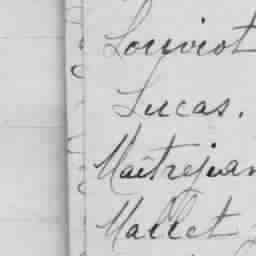 Louviot
Lucas.
Maîtrejean
Mallet